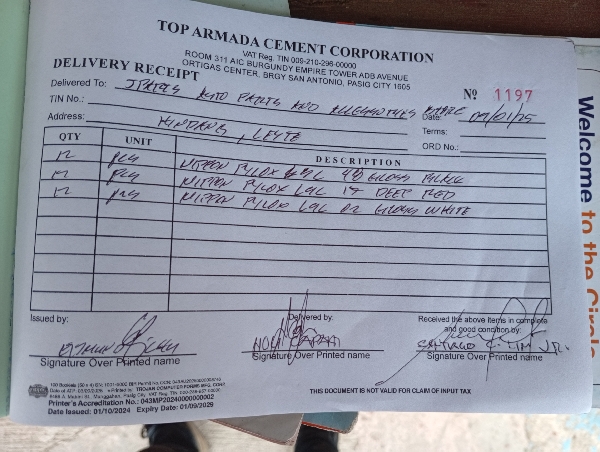 TOP ARMADA CEMENT CORPORATION
VAT Reg. TIN 009-210-296-00000
ROOM 311 AIC BURGUNDY EMPIRE TOWER ADB AVENUE
ORTIGAS CENTER, BRGY SAN ANTONIO, PASIG CITY 1605
DELIVERY RECEIPT
Nº 1197
Delivered To: AUTO PARTS AND
Date: 09/01/25
TIN No.:
Terms:
Address: HINDANG, LEYTE
ORD No.:
QTY UNIT DESCRIPTION
12 pcs NIPPON PYLOX GLOSS BLACK
12 pcs NIPPON PYLOX LAC 12 DEEP RED
12 pcs NIPPON PYLOX LAC GLOSS WHITE
Issued by: Delivered by: Received the above items in complete
and good condition by:
Signature Over Printed name Signature Over Printed name Signature Over Printed name
Printer's Accreditation No.: 043MP20240000000002
Date Issued: 01/10/2024 Expiry Date: 01/09/2029
THIS DOCUMENT IS NOT VALID FOR CLAIM OF INPUT TAX
Welcome to the Circle